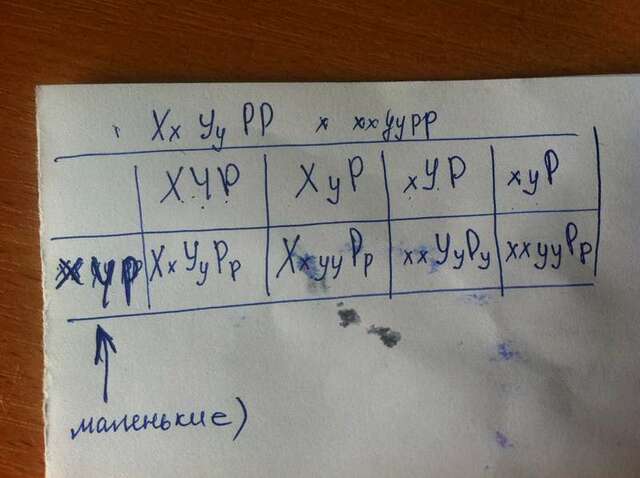 Xx Yy PP x xxyypp
XYP XyP xYP xyP
xyp XxYyPp XxyyPp xxYyPy xxyyPp
маленькие)